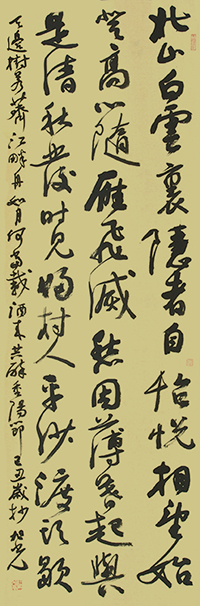 北山白雲裏隱者自怡悅相望始
登高心隨雁飛滅愁因薄暮起興
是清秋發時見歸村人平沙渡頭歇
天邊樹若薺江畔舟如月何當載酒來共醉重陽節 辛丑歲杪